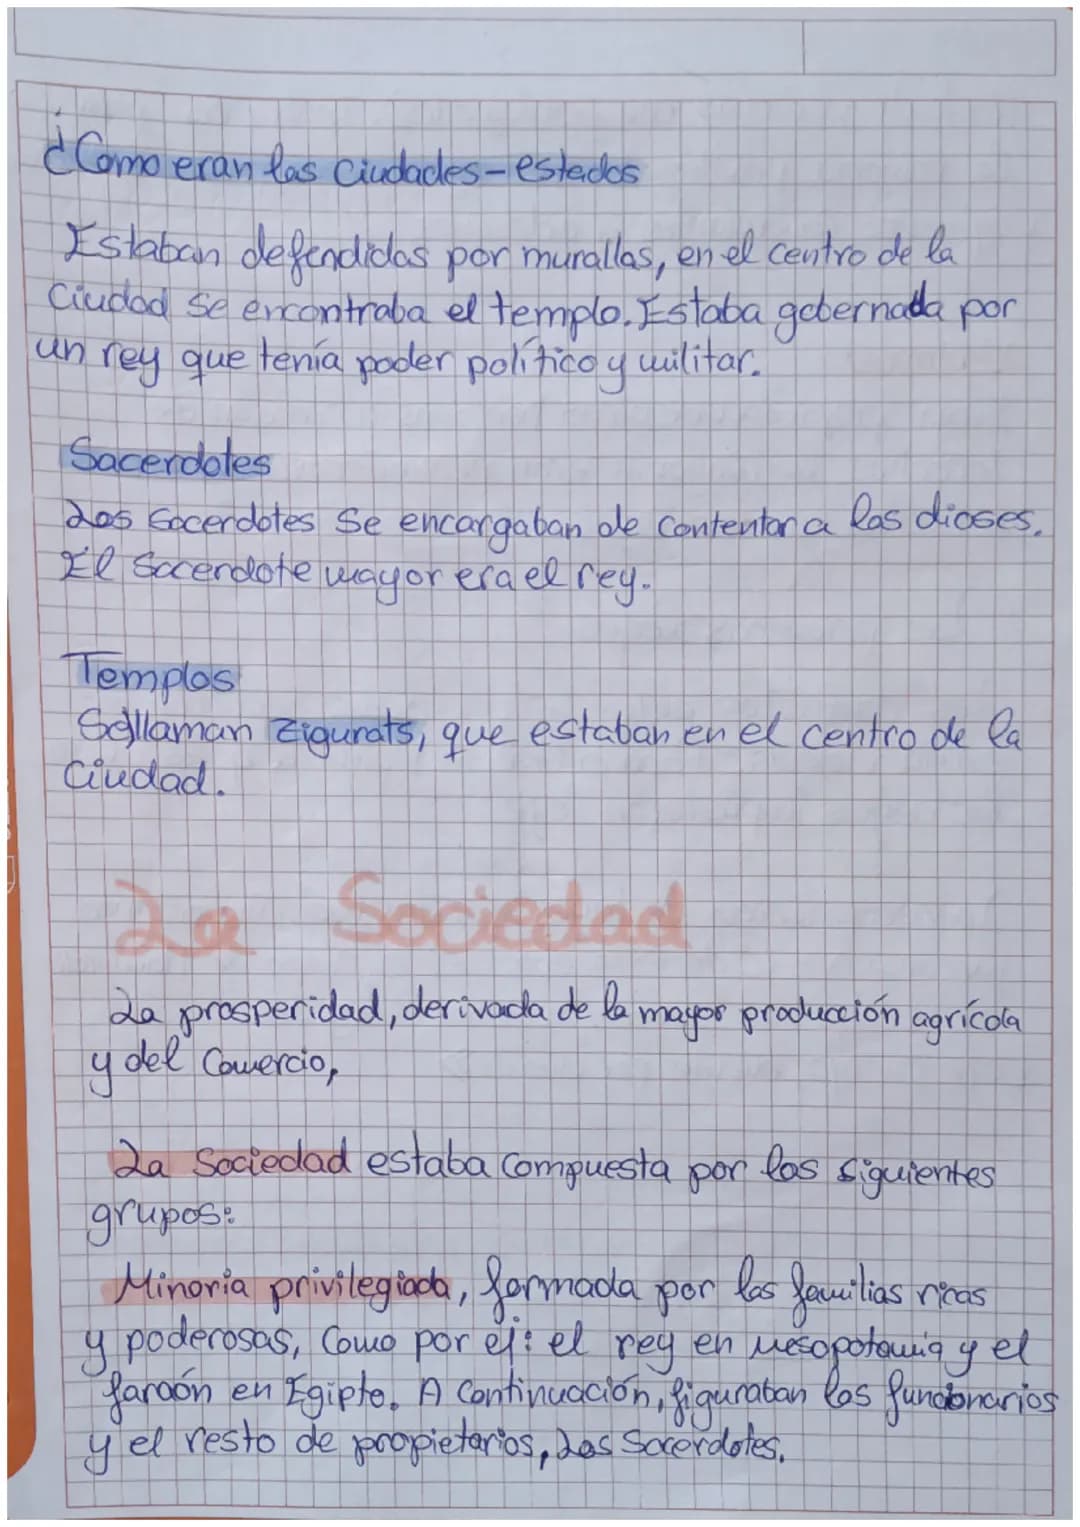 ¿Como eran las Ciudades-estados
Estaban defendidas por murallas, en el centro de la
Ciudad se encontraba el templo. Estaba gobernada por
un rey que tenía poder político y militar.
Sacerdotes
Los Sacerdotes Se encargaban de Contentar a los dioses.
El Sacerdote mayor era el rey.
Templos
Se llaman Zigurats, que estaban en el centro de la
Ciudad.
La Sociedad
La prosperidad, derivada de la mayor producción agrícola
y del Comercio,
La Sociedad estaba Compuesta por los siguientes
grupos:
Minoria privilegiada, formada por las familias ricas
y poderosas, Como por ej: el rey en Mesopotamia y el
faraón en Egipto. A Continuación, figuraban los funcionarios
y el resto de propietarios, Los Sacerdotes.